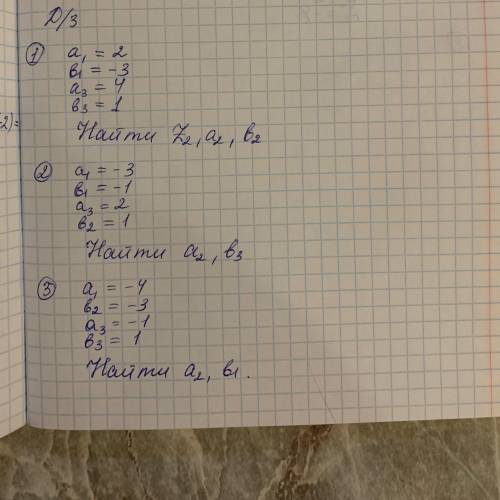 Д/З
-2)=
① a₁ = 2
b₁ = -3
a₃ = 4
b₃ = 1
Найти Z₂, a₂, b₂
② a₁ = -3
b₁ = -1
a₃ = 2
b₂ = 1
Найти a₂, b₃
③ a₁ = -4
b₂ = -3
a₃ = -1
b₃ = 1
Найти a₂, b₁.